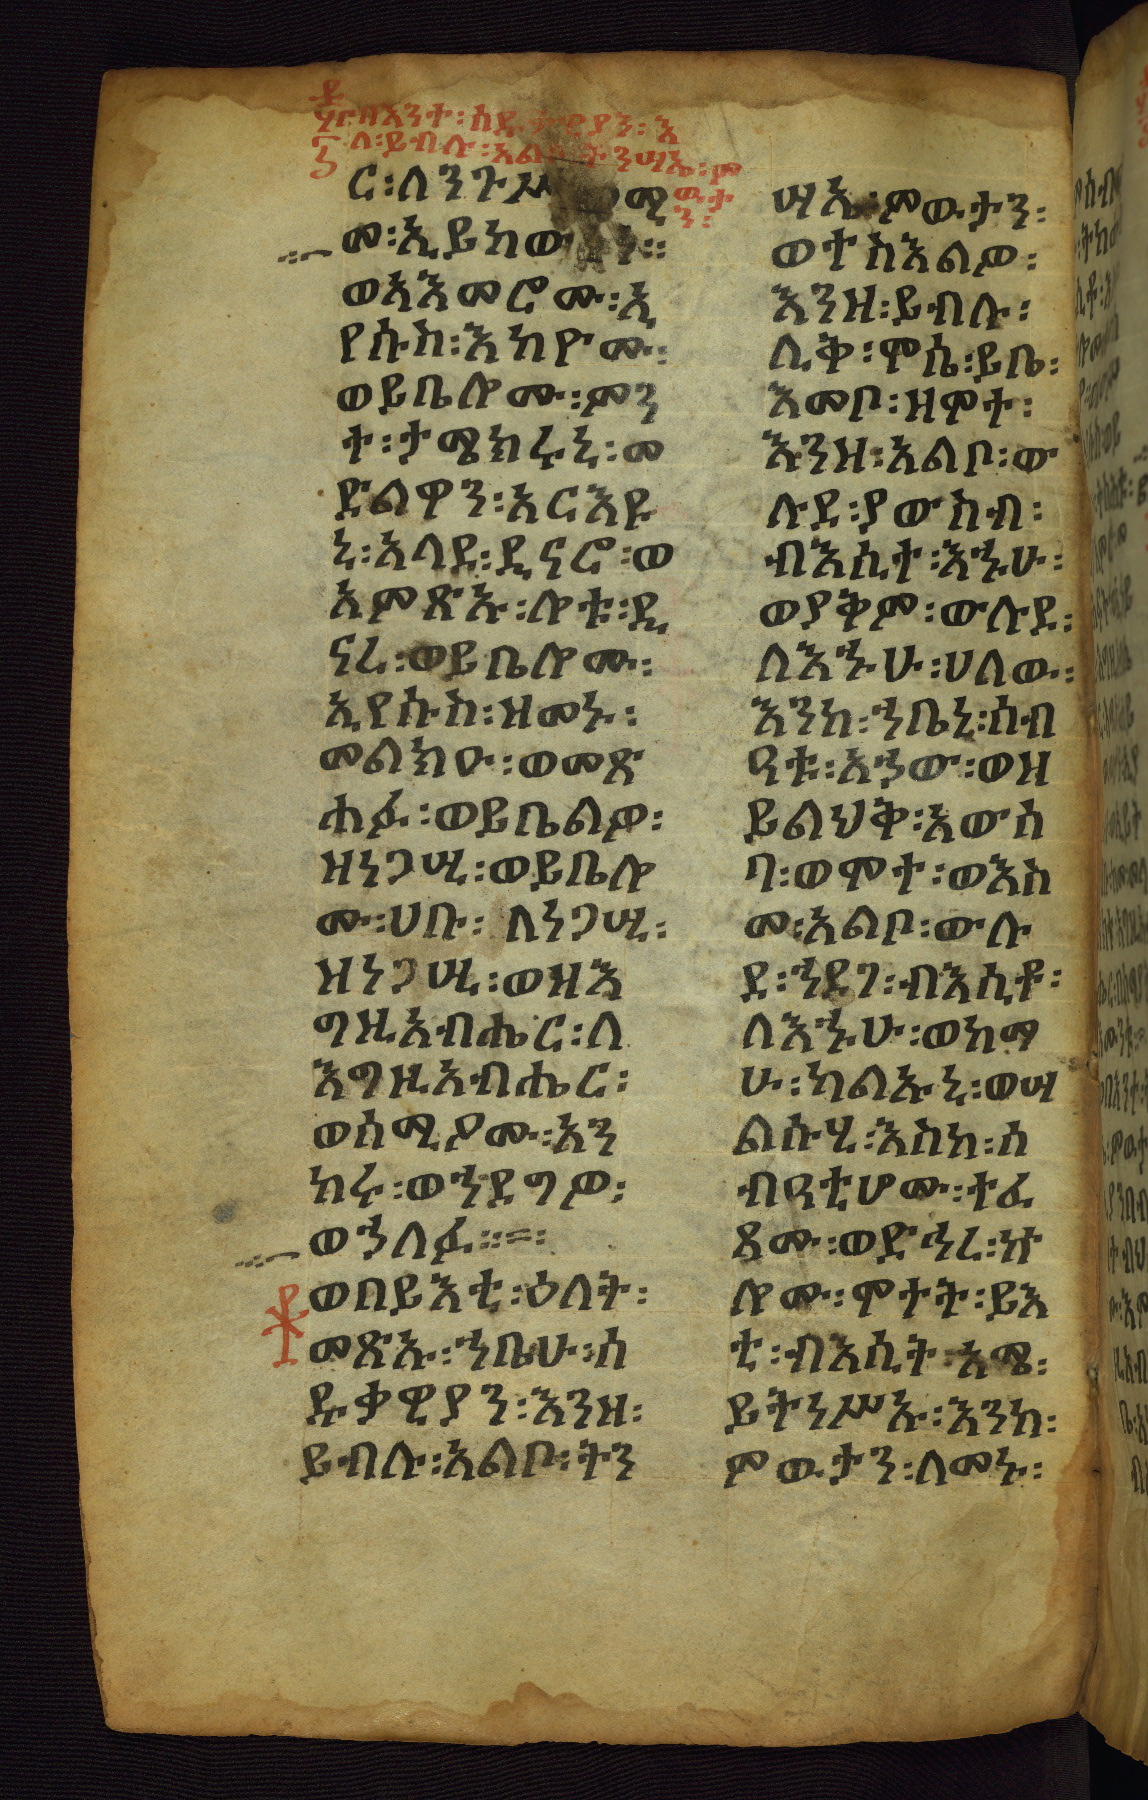 በእንተ፡ ሰዱቃውያን፡ እ
ለ፡ ይብሉ፡ አልቦ፡ ትንሣኤ፡ ም
ውታ
ን፡
ር፡ ለንጉሥ
መ፡ ኢይከው
ወአእመሮሙ፡ ኢ
የሱስ፡ እከዮሙ፡
ወይቤሎሙ፡ ምን
ተ፡ ታሜክሩኒ፡ መ
ድልዋን፡ አርእዩ
ኒ፡ አላደ፡ ዲናሮ፡ ወ
አምጽኡ፡ ሎቱ፡ ዲ
ናረ፡ ወይቤሎሙ፡
ኢየሱስ፡ ዝመኑ፡
መልክዑ፡ ወመጽ
ሐፉ፡ ወይቤልዎ፡
ዘነጋሢ፡ ወይቤሎ
ሙ፡ ሀቡ፡ ለነጋሢ፡
ዘነጋሢ፡ ወዘእ
ግዚአብሔር፡ ለ
እግዚአብሔር፡
ወሰሚዖሙ፡ አን
ከሩ፡ ወኀደግዎ፡
ወኀለፉ።
ወበይእቲ፡ ዕለት፡
መጽኡ፡ ኀቤሁ፡ ሰ
ዱቃዊያን፡ እንዘ፡
ይብሉ፡ አልቦ፡ ትን
ሣኤ፡ ምውታን፡
ወተስእልዎ፡
እንዘ፡ ይብሉ፡
ሊቅ፡ ሞሴ፡ ይቤ፡
እመቦ፡ ዘሞተ፡
እንዘ፡ አልቦ፡ ው
ሉደ፡ ያውስብ፡
ብእሲተ፡ እኁሁ፡
ወያቅም፡ ውሉደ፡
ለእኁሁ፡ ሀለው፡
እንከ፡ ኀቤነ፡ ሰብ
ዓቱ፡ አኀው፡ ወዘ
ይልህቅ፡ አውሰ
ባ፡ ወሞተ፡ ወእስ
መ፡ አልቦ፡ ውሉ
ደ፡ ኀደገ፡ ብእሲቶ፡
ለእኁሁ፡ ወከማ
ሁ፡ ካልኡኒ፡ ወሣ
ልሱሂ፡ እስከ፡ ሰ
ብዓቲሆሙ፡ ተፈ
ጻሙ፡ ወድኅረ፡ ኵ
ሎሙ፡ ሞተት፡ ይእ
ቲ፡ ብእሲት፡ አሜ፡
ይትነሥኡ፡ እንከ፡
ምውታን፡ ለመኑ፡